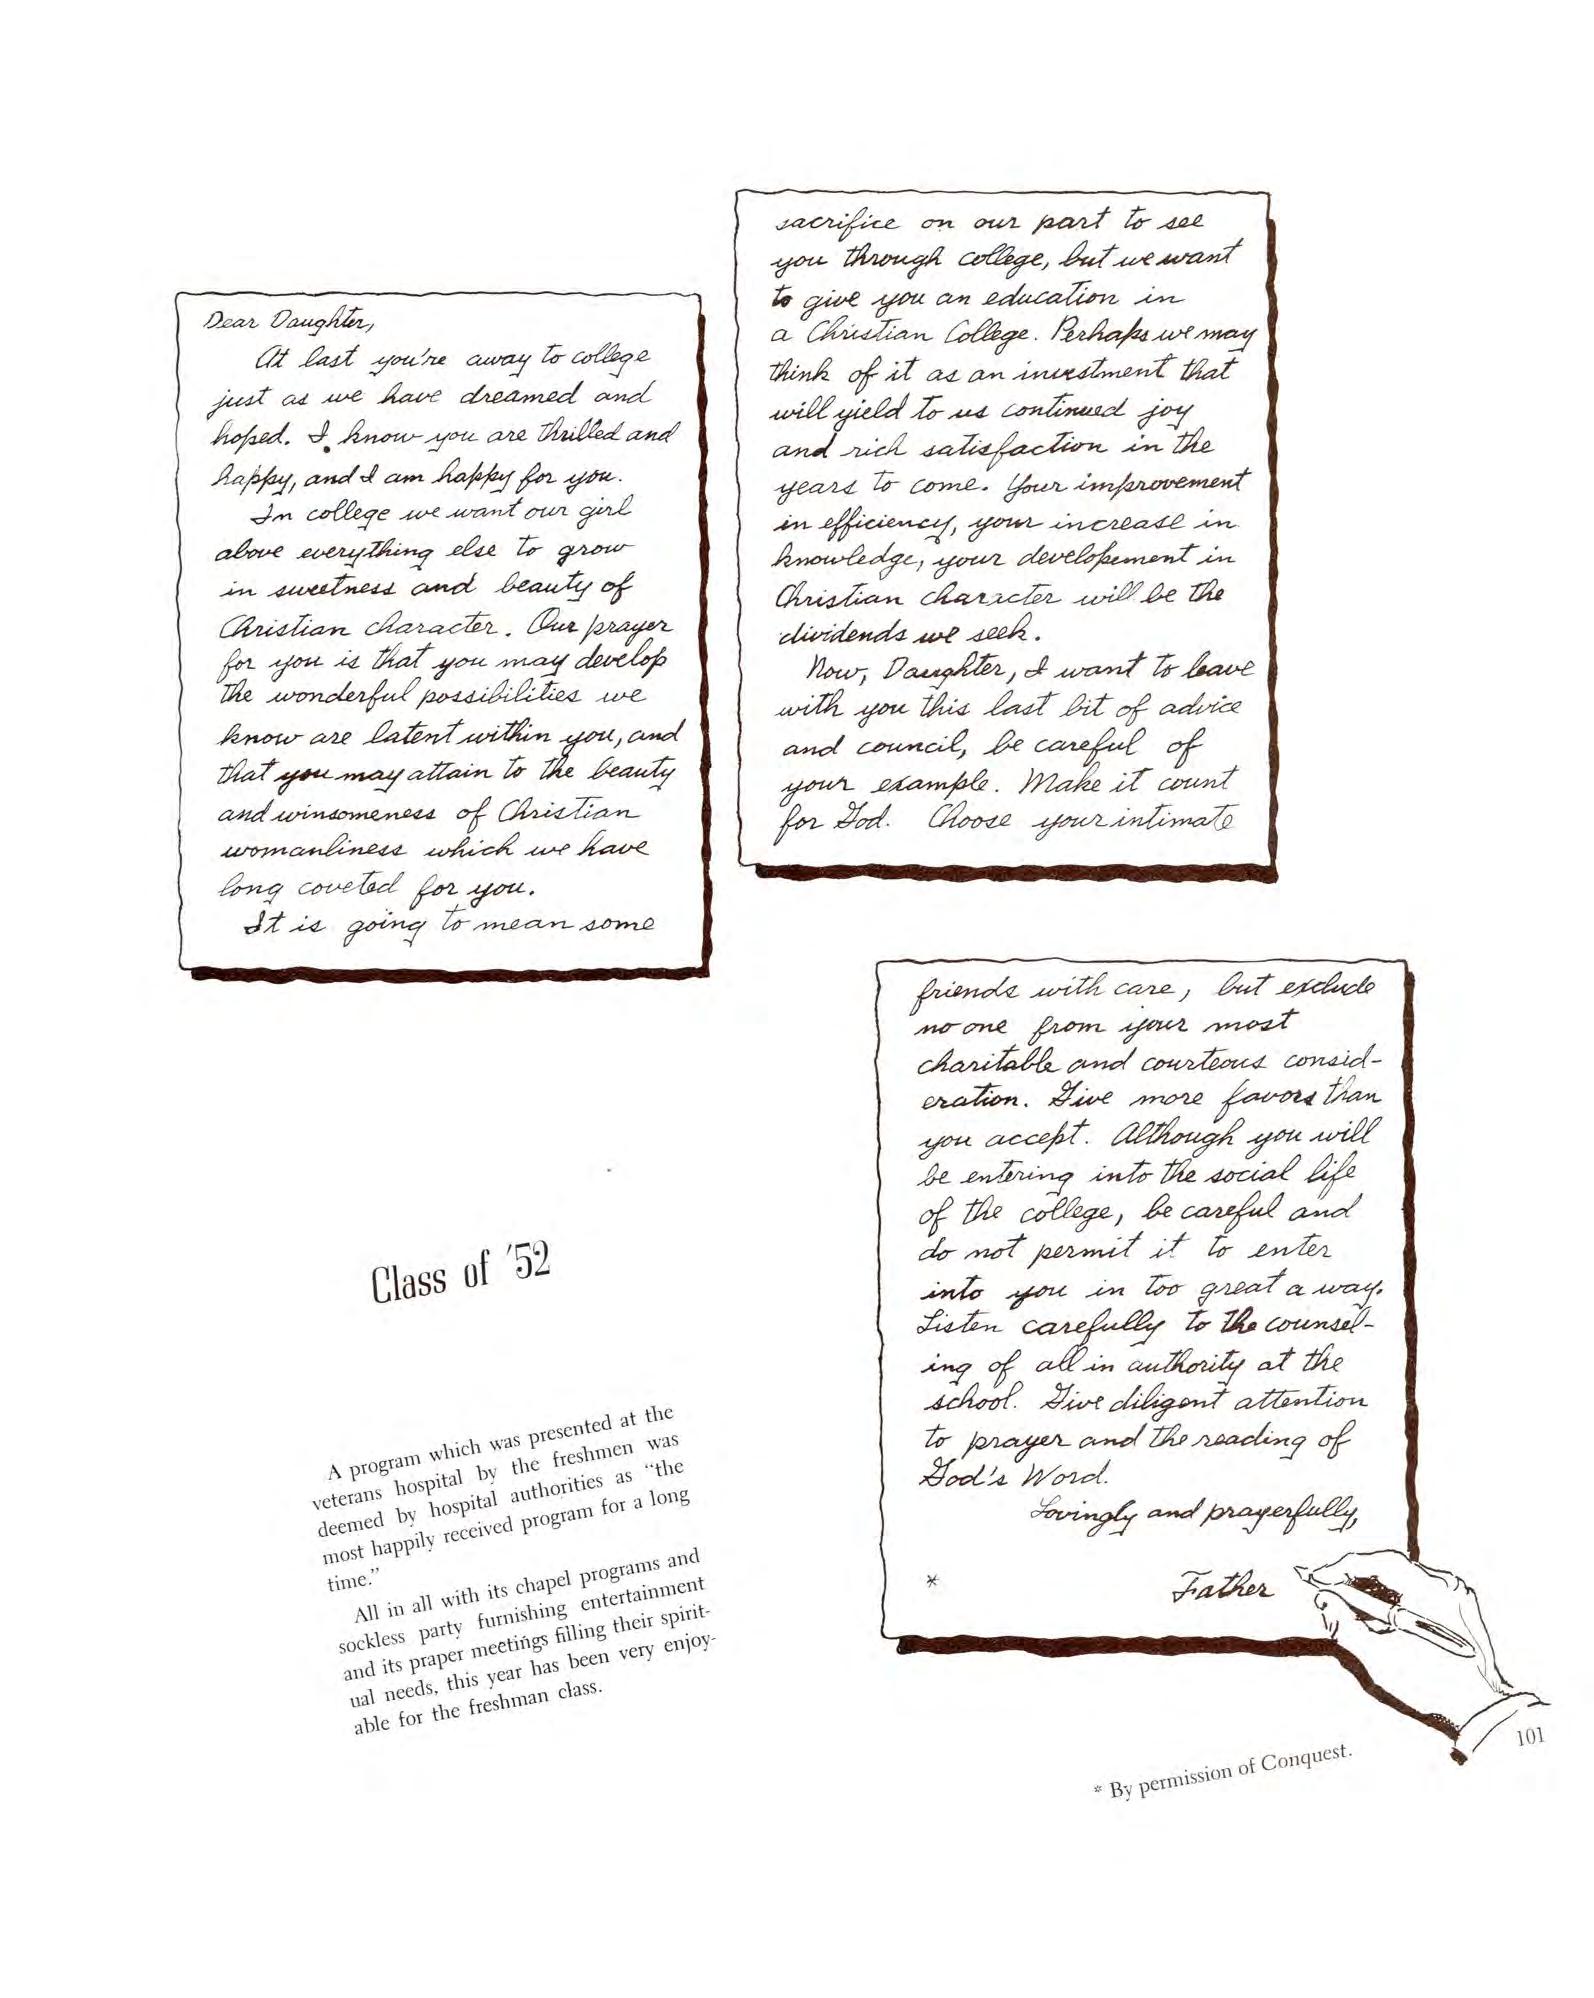 Dear Daughter,
At last you're away to college
just as we have dreamed and
hoped. I know you are thrilled and
happy, and I am happy for you.
In college we want our girl
above everything else to grow
in sweetness and beauty of
Christian character. Our prayer
for you is that you may develop
the wonderful possibilities we
know are latent within you, and
that you may attain to the beauty
and winsomeness of Christian
womanliness which we have
long coveted for you.
It is going to mean some
sacrifice on our part to see
you through college, but we want
to give you an education in
a Christian College. Perhaps we may
think of it as an investment that
will yield to us continued joy
and rich satisfaction in the
years to come. Your improvement
in efficiency, your increase in
knowledge, your developement in
Christian character will be the
dividends we seek.
Now, Daughter, I want to leave
with you this last bit of advice
and council, be careful of
your example. Make it count
for God. Choose your intimate
friends with care, but exclude
no one from your most
charitable and courteous consid-
eration. Give more favors than
you accept. Although you will
be entering into the social life
of the college, be careful and
do not permit it to enter
into you in too great a way.
Listen carefully to the counsel-
ing of all in authority at the
school. Give diligent attention
to prayer and the reading of
God's Word.
Lovingly and prayerfully,
* Father
Class of '52
A program which was presented at the
veterans hospital by the freshmen was
deemed by hospital authorities as "the
most happily received program for a long
time."
All in all with its chapel programs and
sockless party furnishing entertainment
and its praper meetings filling their spirit-
ual needs, this year has been very enjoy-
able for the freshman class.
* By permission of Conquest.
101